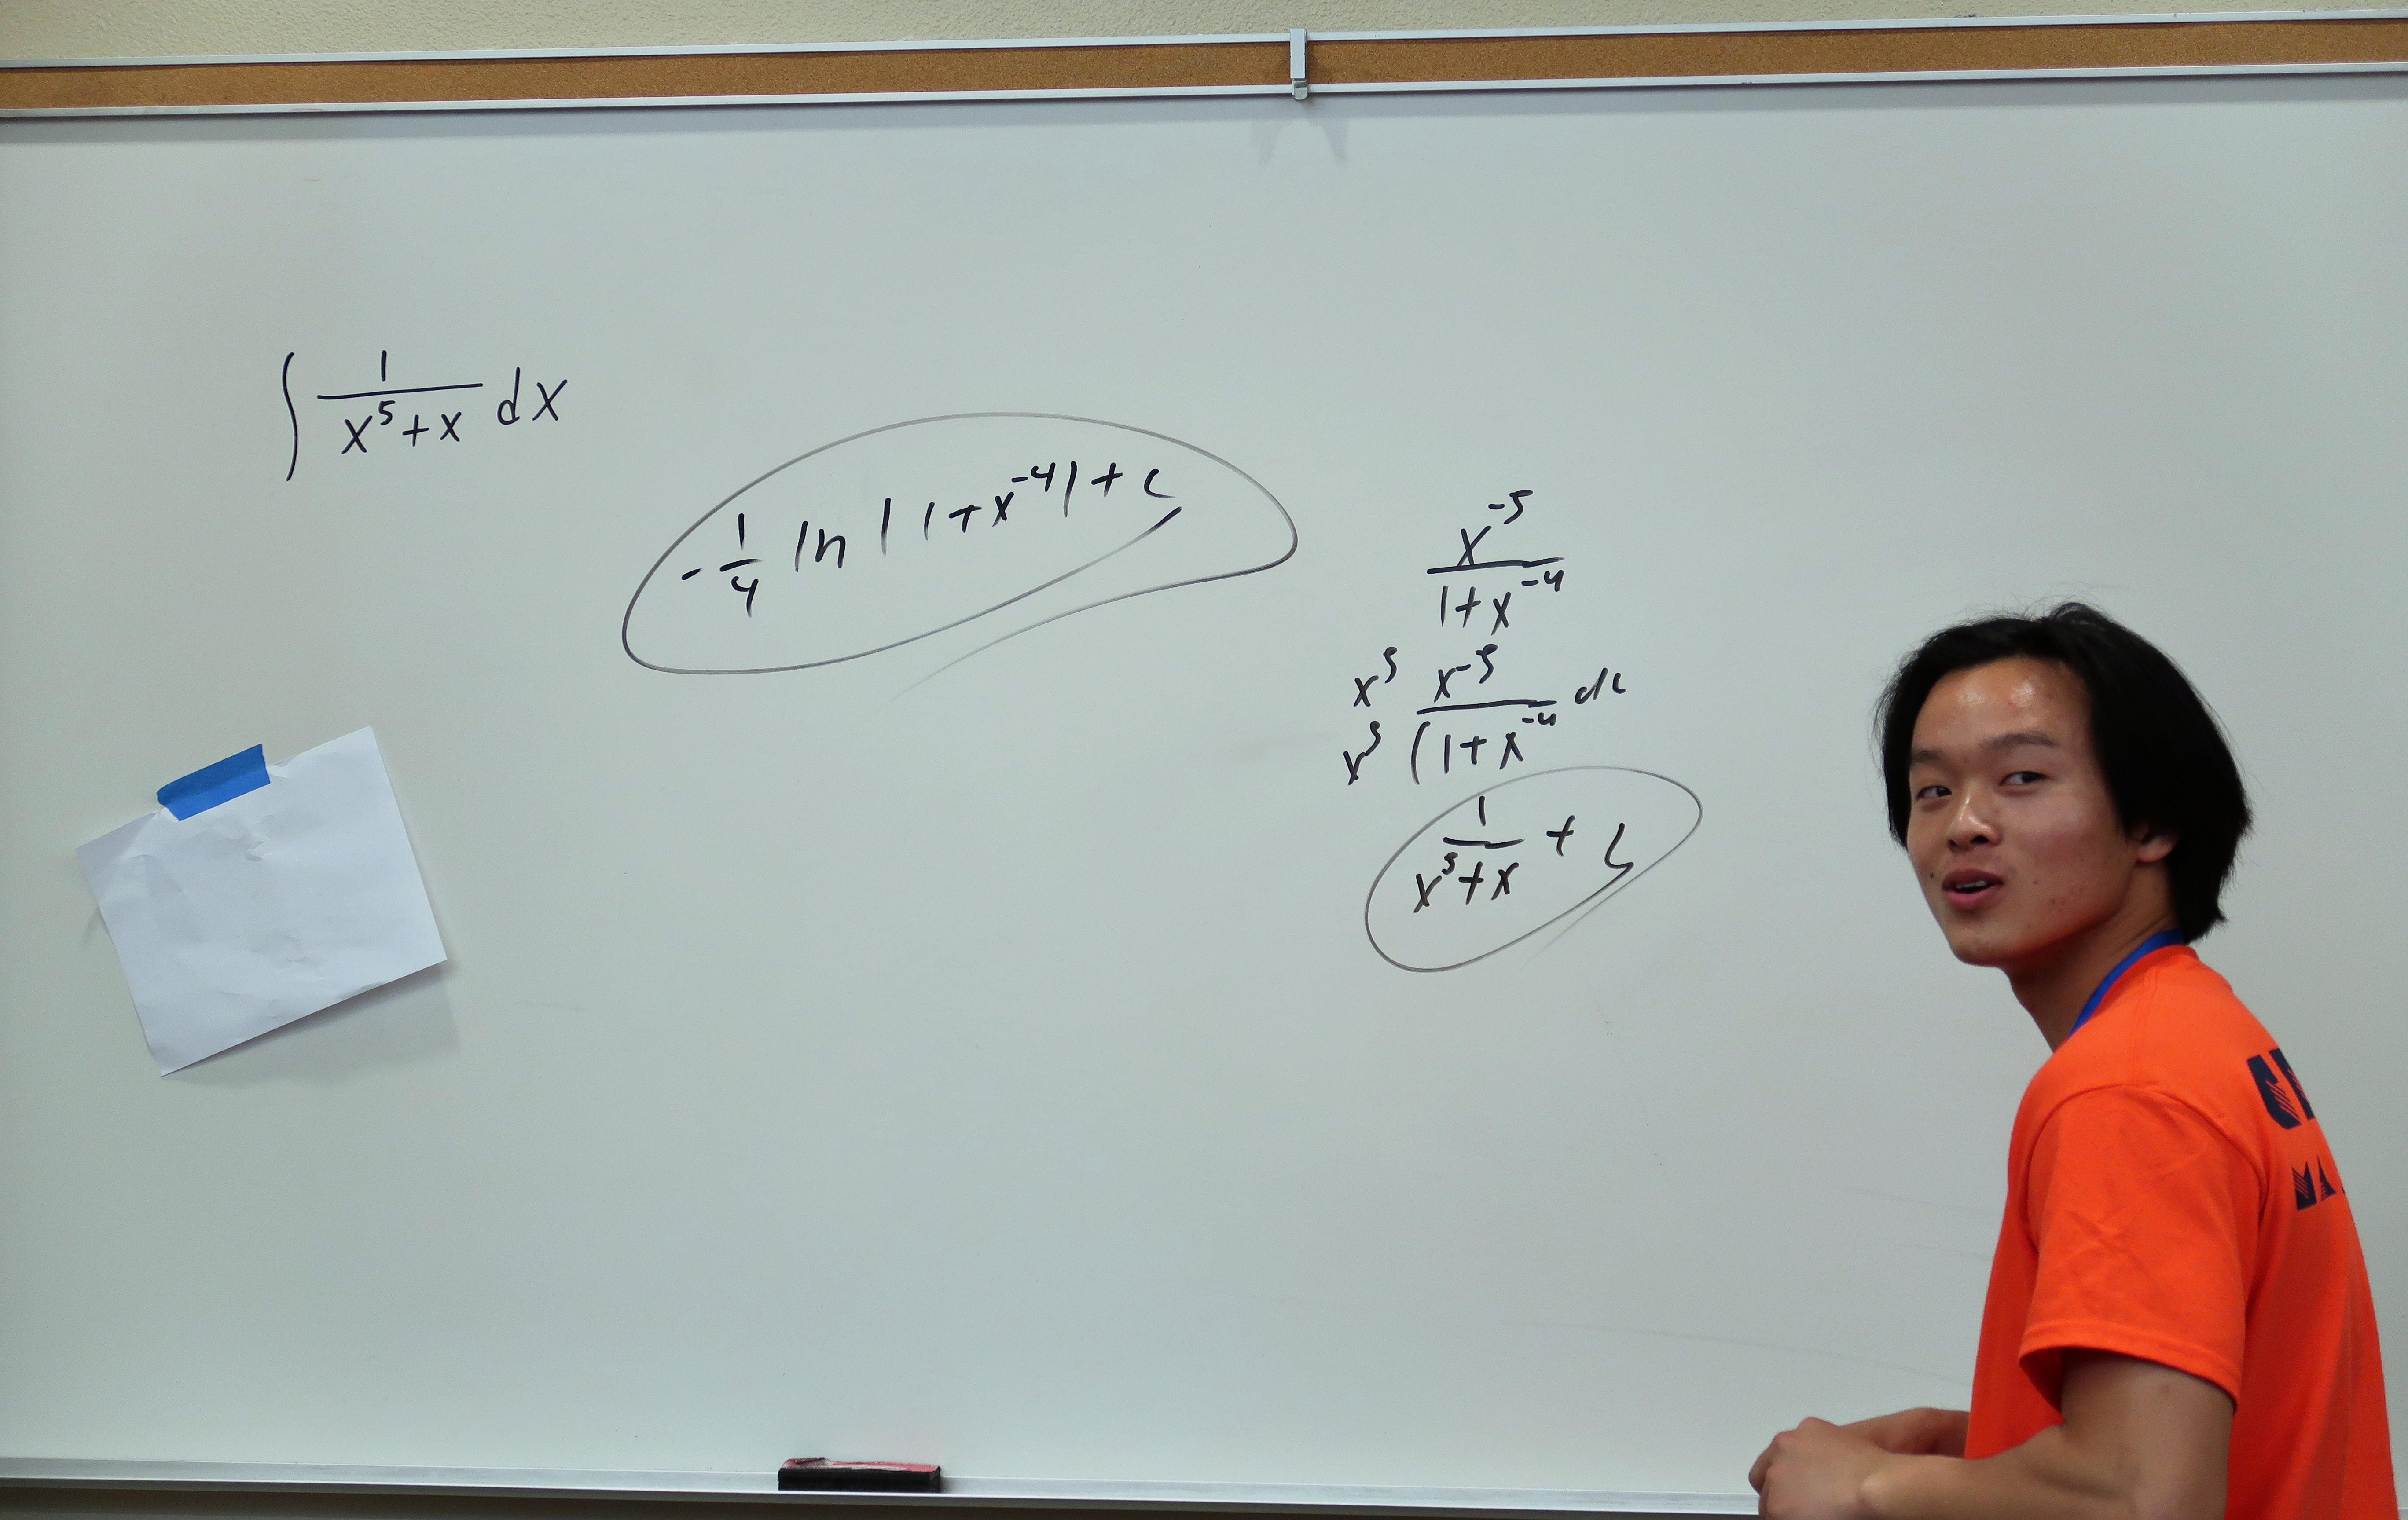 ∫ 1/(x⁵+x) dx
-1/4 ln |1+x⁻⁴| + c
x⁻⁵/(1+x⁻⁴)
x⁵ x⁻⁵ / x⁵ (1+x⁻⁴ dx
1/(x⁵+x) + C